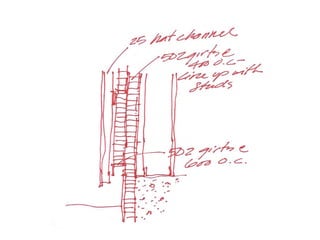 25 hat channel
50Z girts @
400 O.C.
Line up with
studs
50Z girts @
600 O.C.